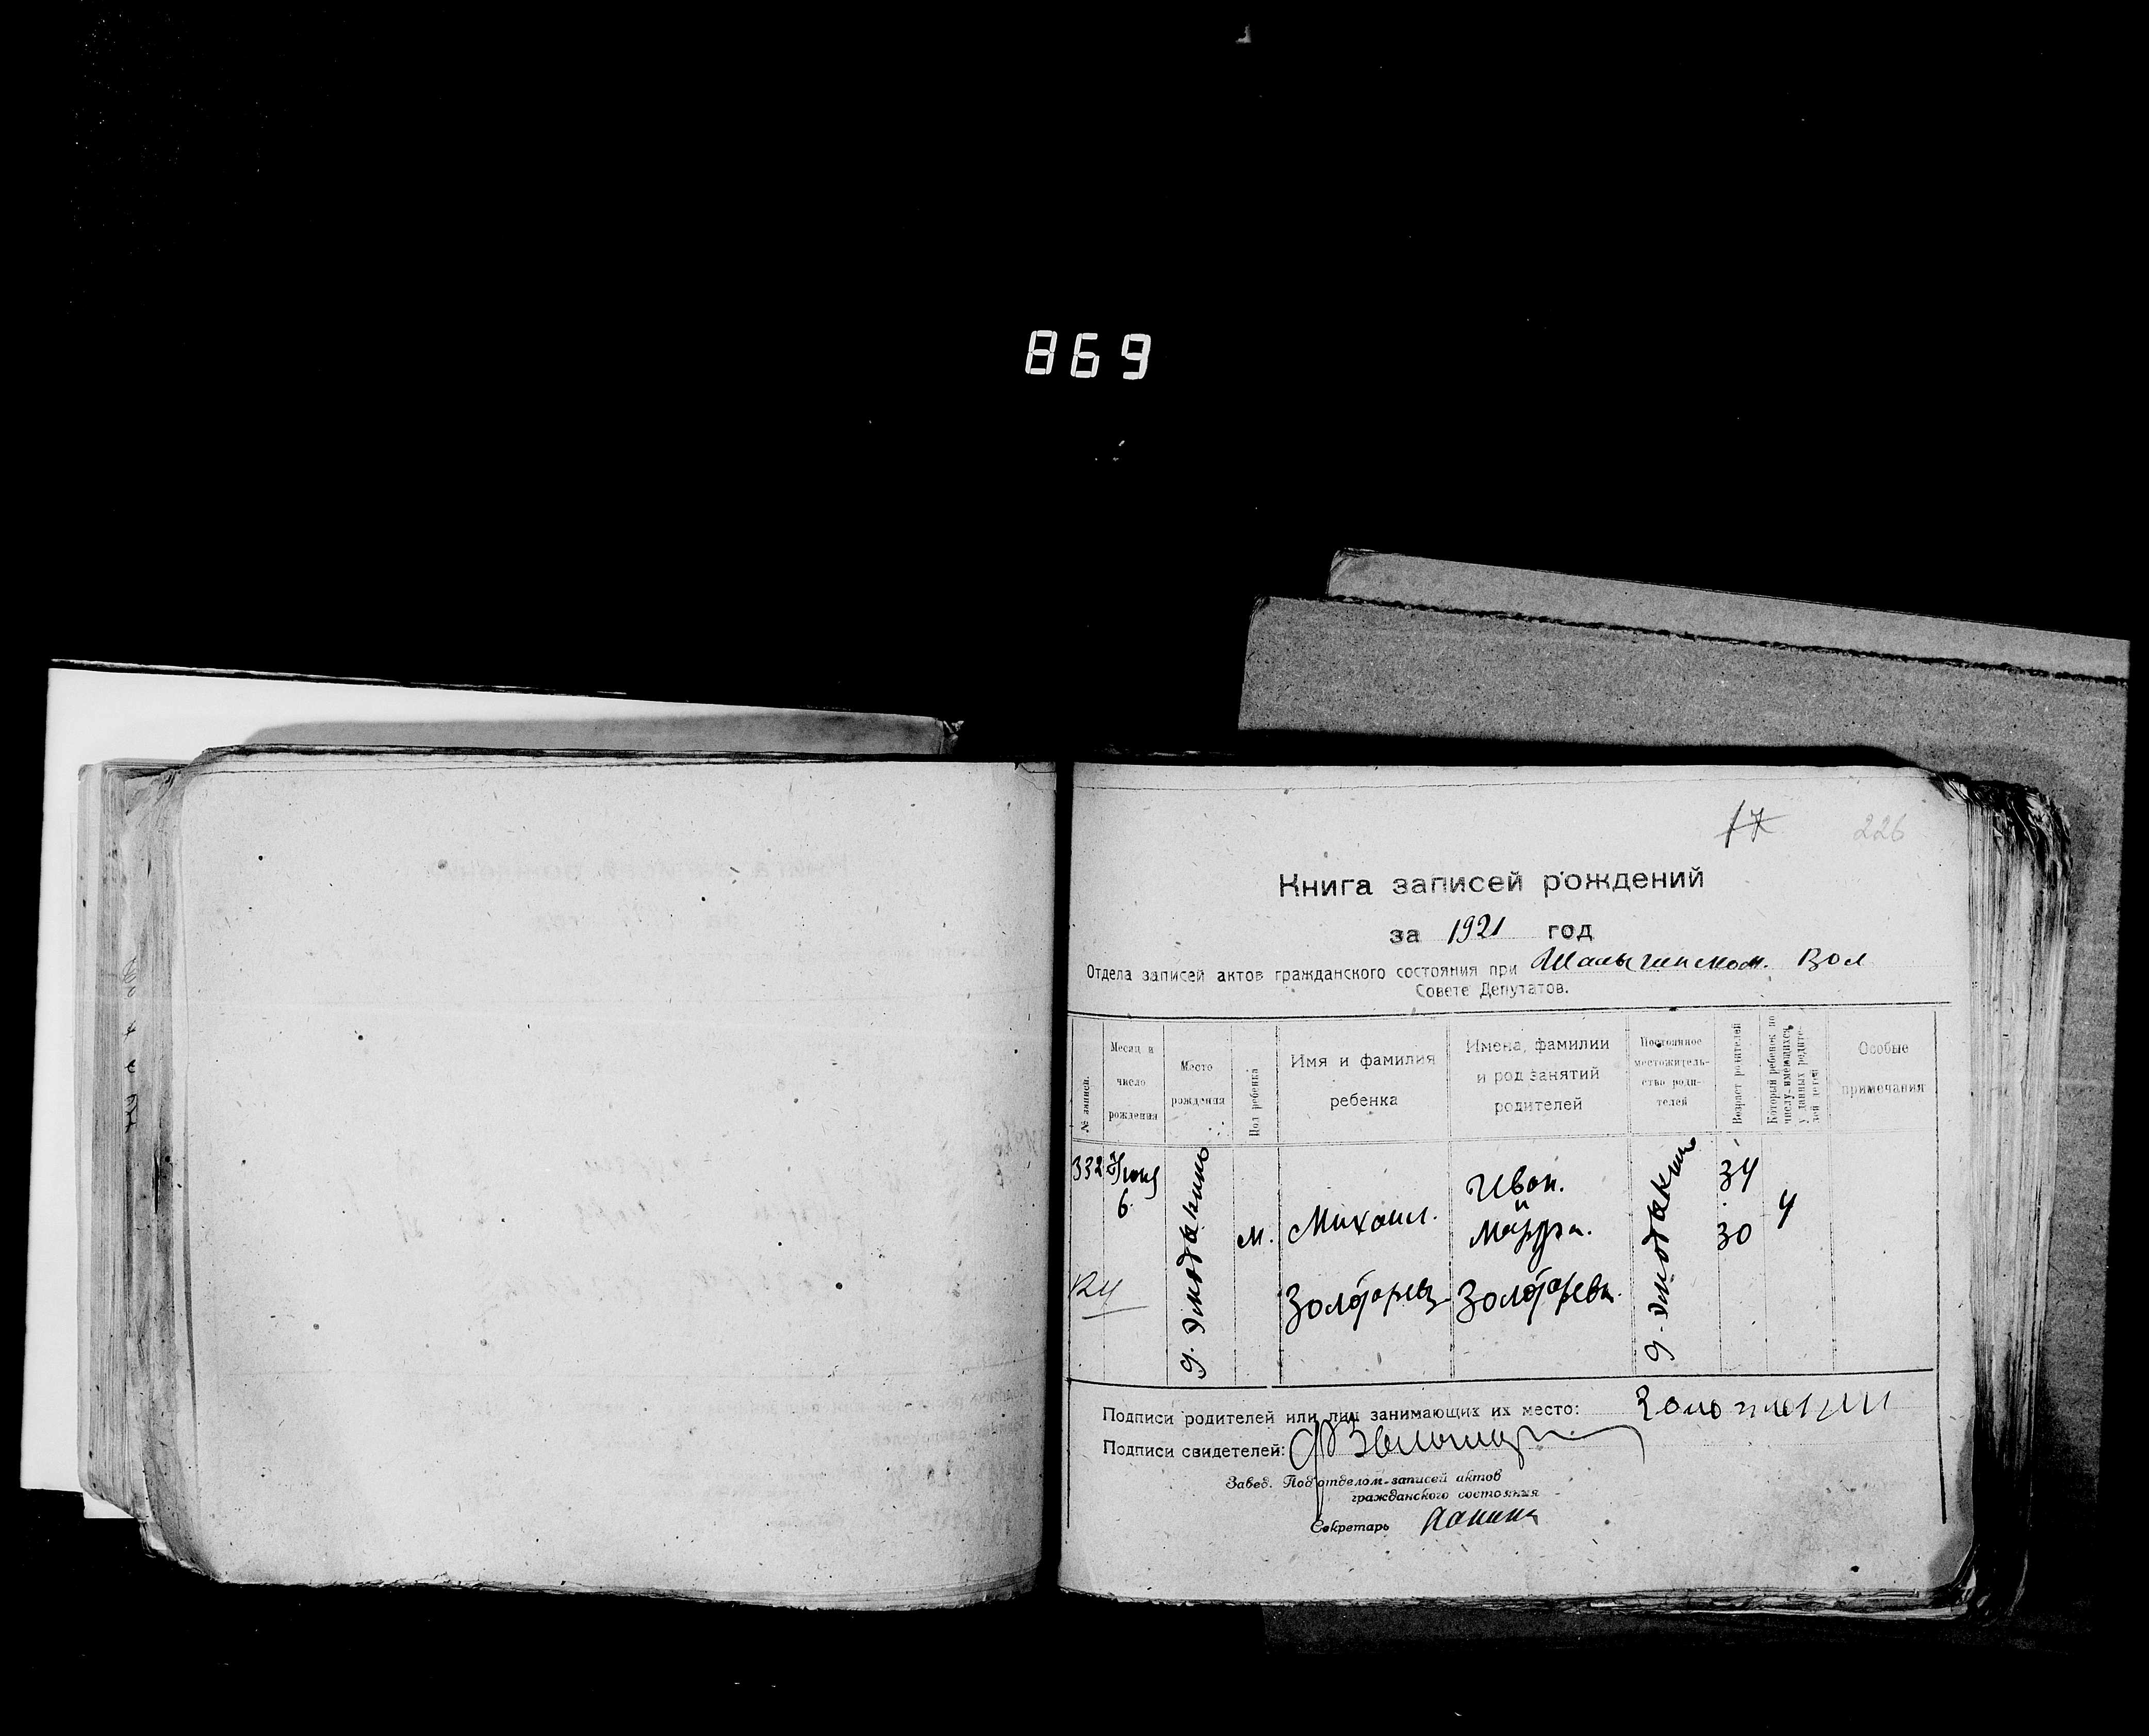 869
17 226
Книга записей рождений
за 1921 год
Отдела записей актов гражданского состояния при Шалыгинском. Вол
Совете Депутатов.
№ записи.
Месяц и число рождения
Место рождения
Пол ребенка
Имя и фамилия ребенка
Имена, фамилии и род занятий родителей
Постоянное местожительство родителей
Возраст родителей
Который ребенок по числу, имеющихся у данных родителей детей
Особые примечания
332
6.
м.
Михаил.
Золотарев
Иван.
и
Золотаревы.
34
30
4
Подписи родителей или лиц занимающих их место:
Подписи свидетелей:
Завед. Подотделом-записей актов
гражданского состояния
Секретарь